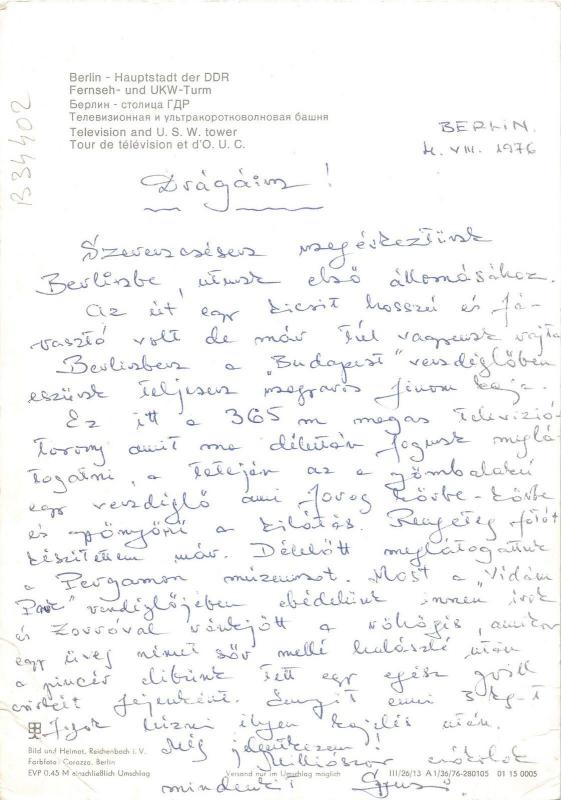 Berlin - Hauptstadt der DDR
Fernseh- und UKW-Turm
Берлин - столица ГДР
Телевизионная и ультракоротковолновая башня
Television and U. S. W. tower
Tour de télévision et d'O. U. C.
B34402
BERLIN.
4. VIII. 1976
Drágáim!
Szerencsésen megérkeztünk
Berlinbe, utunk első állomásához.
Az út egy kicsit hosszú és fá-
rasztó volt de már túl vagyunk rajta
Berlinben a "Budapest" vendéglőben
eszünk teljesen magyaros finom kaja.
Ez itt a 365 m magas televízió-
torony amit ma délután fogunk meglá-
togatni, a tetején az a gömbalakú
egy vendéglő ami forog körbe-körbe
és gyönyörű a kilátás. Rengeteg fotót
készítettem már. Délelőtt meglátogattuk
a Pergamon múzeumot. Most a "Vidám
Park" vendéglőjében ebédelünk innen írok
és Zorróval ránkjött a röhögés, amikor
egy üveg német sör mellé halászlé után
a pincér elibünk tett egy egész grill
csirkét fejenként. Ennyit enni 3 kg-t
fogok hízni ilyen kajálás után.
Még jelentkezem!
Milliószor csókolok
mindenkit
Bild und Heimat, Reichenbach i. V.
Farbfoto: Corazza, Berlin
EVP 0,45 M einschließlich Umschlag
Versand nur im Umschlag möglich
III/26/13 A 1/36/76-280105 01 15 0005